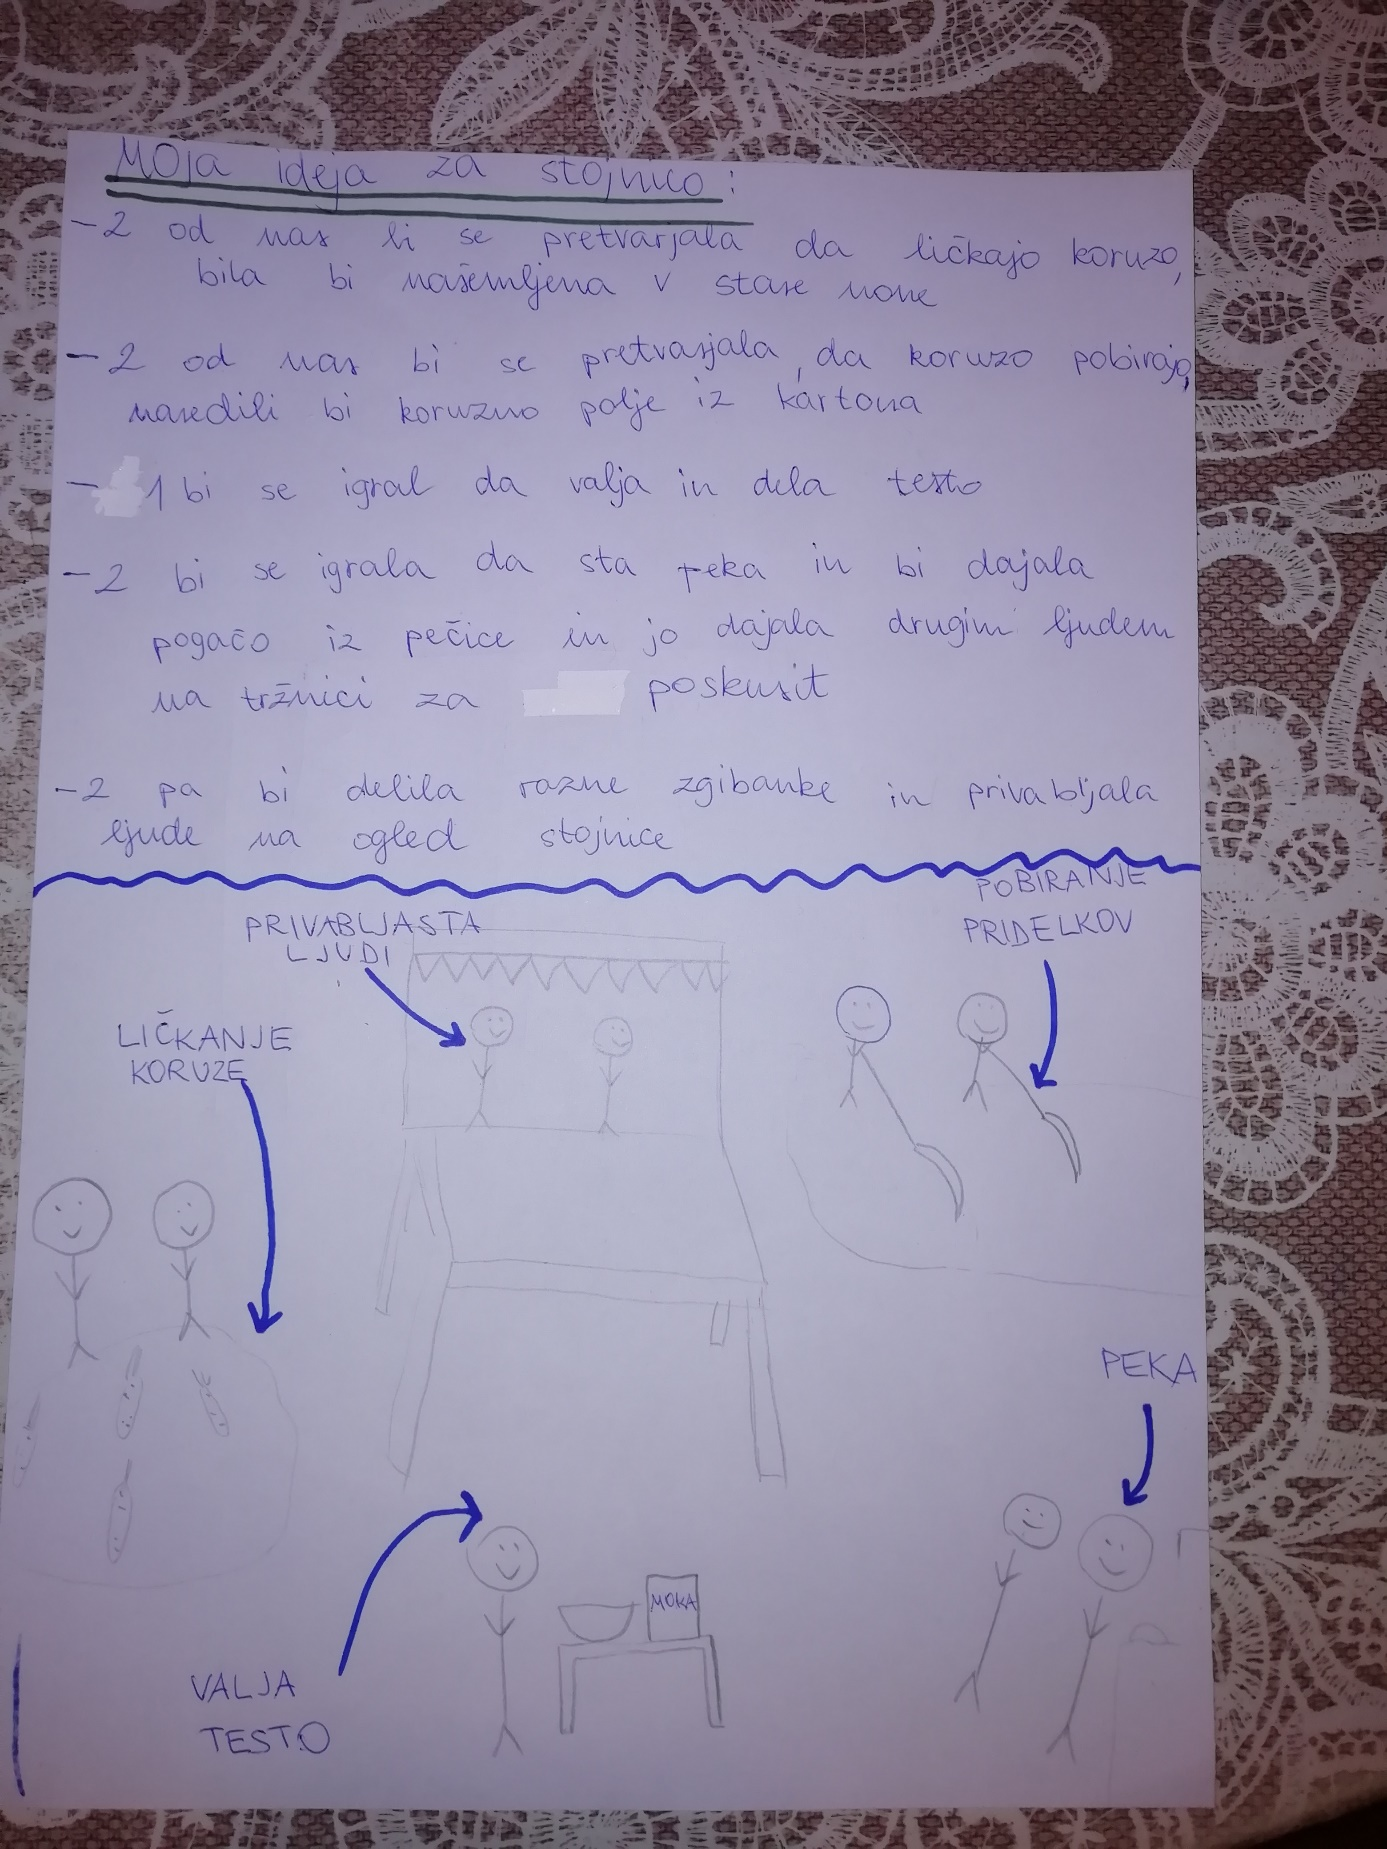 Moja ideja za stojnico:
-2 od nas bi se pretvarjala da ličkajo koruzo,
bila bi našemljena v stare none
-2 od nas bi se pretvarjala, da koruzo pobirajo,
naredili bi koruzno polje iz kartona
- 1 bi se igral da valja in dela testo
-2 bi se igrala da sta peka in bi dajala
pogačo iz pečice in jo dajala drugim ljudem
na tržnici za poskusit
-2 pa bi delila razne zgibanke in privabljala
ljude na ogled stojnice
PRIVABLJASTA
LJUDI
POBIRANJE
PRIDELKOV
LIČKANJE
KORUZE
PEKA
MOKA
VALJA
TESTO